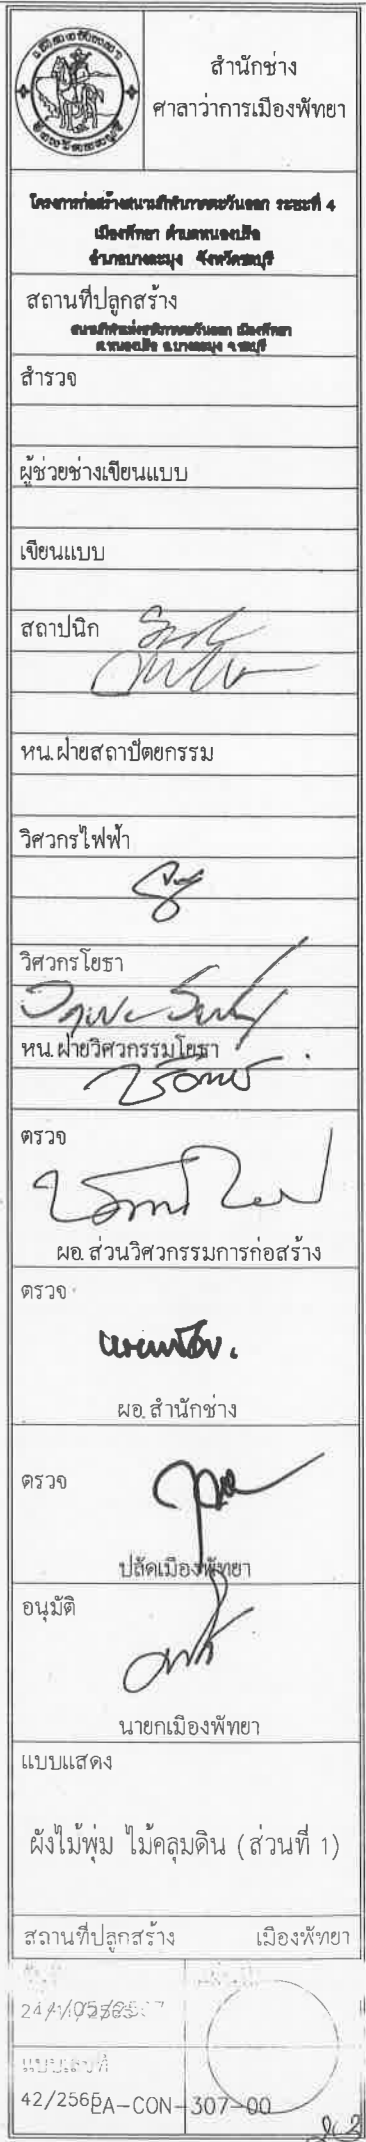 เมืองพัทยา
จังหวัดชลบุรี
สำนักช่าง
ศาลาว่าการเมืองพัทยา
โครงการก่อสร้างสนามกีฬาภาคตะวันออก ระยะที่ 4
เมืองพัทยา ตำบลหนองปรือ
อำเภอบางละมุง จังหวัดชลบุรี
สถานที่ปลูกสร้าง
สนามกีฬาแห่งชาติภาคตะวันออก เมืองพัทยา
ต.หนองปรือ อ.บางละมุง จ.ชลบุรี
สำรวจ
ผู้ช่วยช่างเขียนแบบ
เขียนแบบ
สถาปนิก
หน.ฝ่ายสถาปัตยกรรม
วิศวกรไฟฟ้า
วิศวกรโยธา
หน.ฝ่ายวิศวกรรมโยธา
ตรวจ
ผอ.ส่วนวิศวกรรมการก่อสร้าง
ตรวจ
ผอ.สำนักช่าง
ตรวจ
ปลัดเมืองพัทยา
อนุมัติ
นายกเมืองพัทยา
แบบแสดง
ผังไม้พุ่ม ไม้คลุมดิน (ส่วนที่ 1)
สถานที่ปลูกสร้าง เมืองพัทยา
แบบเลขที่
42/2565
LA-CON-307-00